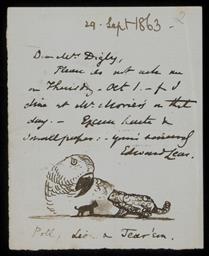 29. Sept 1863.
Dear Mr. Digby,
Please do not ask me
on Thursday - Oct. 1. - for I
dine at Mr. Morier's on that
day. - Excuse haste &
small paper: - yours sincerely
Edward Lear.
Poll, Lion & Tear'em.